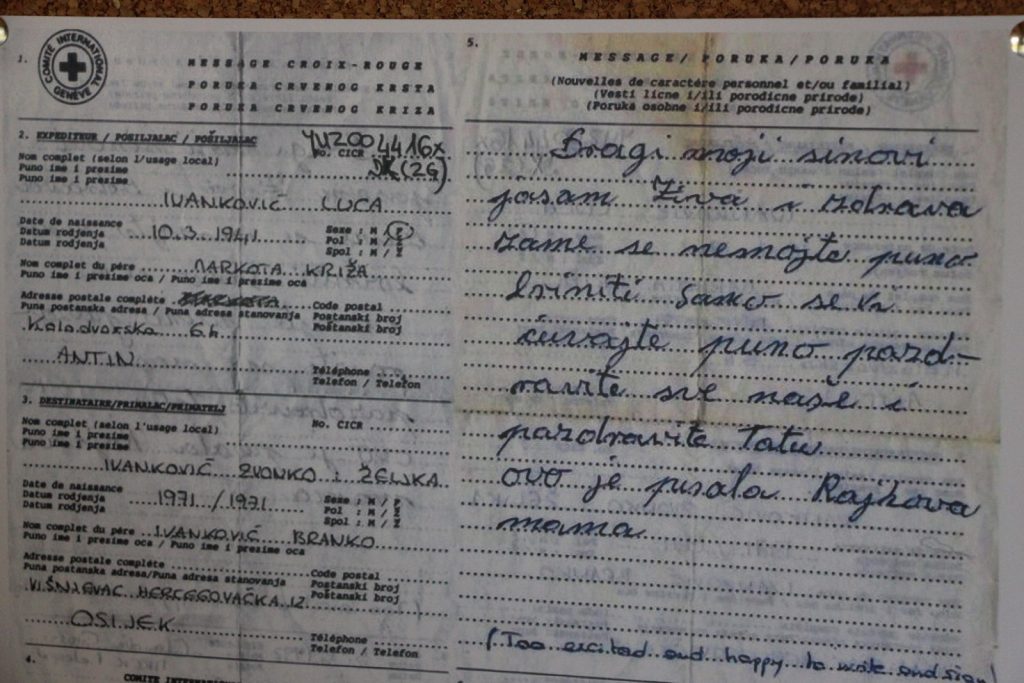 1.
COMITÉ INTERNATIONAL GENÈVE
MESSAGE CROIX-ROUGE
PORUKA CRVENOG KRSTA
PORUKA CRVENOG KRIZA
2. EXPEDITEUR / POSILJALAC / POŠILJALAC
YUZ004416x
No. CICR
(26)
Nom complet (selon l'usage local)
Puno ime i prezime
Puno ime i prezime
IVANKOVIĆ LUCA
Date de naissance
Datum rodjenja
Datum rodjenja
10.3.1941
Sexe : M / F
Pol : M / Ž
Spol : M / Ž
Nom complet du père
Puno ime i prezime oca / Puno ime i prezime oca
MARKOTA KRIŽA
Adresse postale complète
Puna postanska adresa / Puna adresa stanovanja
Code postal
Postanski broj
Poštanski broj
Kolodvorska 66
ANTIN
Téléphone
Telefon / Telefon
3. DESTINATAIRE/PRIMALAC/PRIMATELJ
Nom complet (selon l'usage local)
Puno ime i prezime
Puno ime i prezime
No. CICR
IVANKOVIĆ ZVONKO I ŽELJKA
Date de naissance
Datum rodjenja
Datum rodjenja
1971 / 1971
Sexe : M / F
Pol : M / Ž
Spol : M / Ž
Nom complet du père
Puno ime i prezime oca / Puno ime i prezime oca
IVANKOVIĆ BRANKO
Adresse postale complète
Puna postanska adresa/Puna adresa stanovanja
Code postal
Postanski broj
Poštanski broj
VIŠNJEVAC HERCEGOVAČKA 12
OSIJEK
Téléphone
Telefon / Telefon
4.
5.
MESSAGE/ PORUKA/PORUKA
(Nouvelles de caractère personnel et/ou familial)
(Vesti licne i/ili porodicne prirode)
(Poruka osobne i/ili porodicne prirode)
Dragi moji sinovi
jasam Živa i zdrava
zame se nemojte puno
briniti samo se vi
čuvajte puno pozd-
ravite sve naše i
pozdravite Tatu
ovo je pisala Rajkova
mama
(Too excited and happy to write and sign)